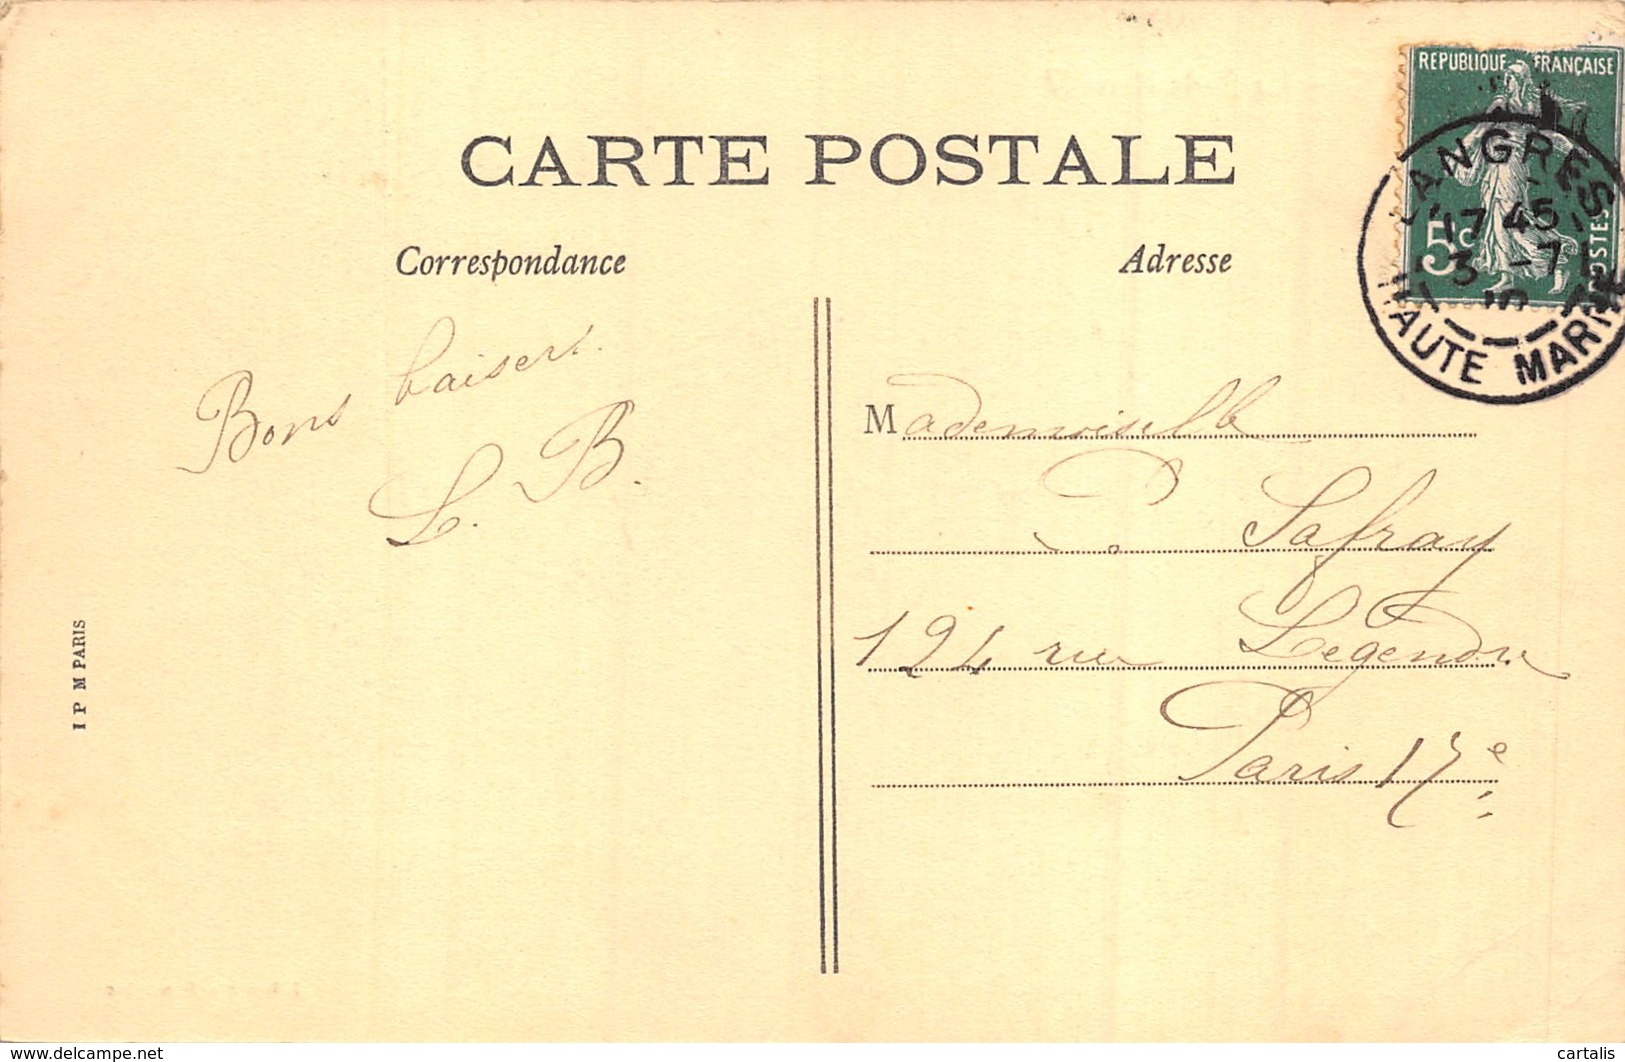 REPUBLIQUE FRANÇAISE
5c
POSTES
LANGRES
17 45
3 -7
HAUTE MARNE
CARTE POSTALE
Correspondance
Adresse
Bons baisers.
L. B.
Mademoiselle
P. Safray
124 rue Legendre
Paris 17e
I P M PARIS
delcampe.net
cartalis